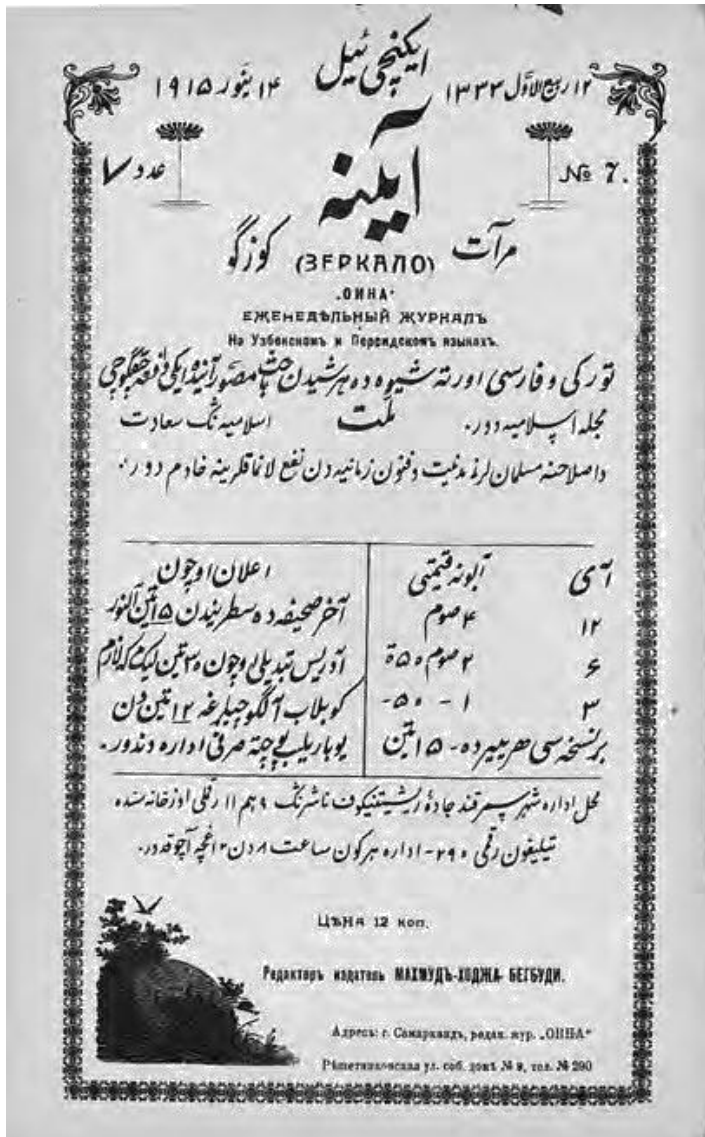 ایکنچی ئیل
١٢ ربیع‌الاوّل ١٣٣٣
١۴ ینور ١٩١۵
№ 7.
عدد ٧
آیینه
مرآت
کوزگو
(ЗЕРКАЛО)
„ОИНА“
ЕЖЕНЕДѢЛЬНЫЙ ЖУРНАЛЪ
На Узбекскомъ и Персидскомъ языкахъ.
تورکی و فارسی اورته شیوه ده هر شیدن باحث مصوّر آیدو ایکی دفعه چقگوچی
مجله اسلامیه دور. ملت اسلامیه نگ سعادت
و اصلاحنه مسلمان لرنه مدنیت و فنون زمانیه دن نفع لانماقلرینه خادم دور.
آی آبونه قیمتی
١٢ ۴ صوم
۶ ٢ صوم ۵٠ ة
٣ ١ - ۵٠ -
بر نسخه سی هر ییرده - ١۵ تین
اعلان اوچون
آخر صحیفه ده سطریندن ١۵ تین آلنور
آدریس تبدیلی اوچون ٣٠ تین لیک مرکه لازم
کوبلاب آلگوچیلرغه ١٢ تین دن
یوباریلب پوچته صرفی اداره دندور.
محل اداره شهر سمرقند جادهٔ ریشیتنیکوف ناشرنگ ٩ هم ١١ رقملی اوز خانه سنده
تیلیفون رقمی ٢٩٠ - اداره هر کون ساعت ٨ دن ٢ غچه آچوقدر.
ЦѢНА 12 коп.
Редакторъ издатель МАХМУДЪ-ХОДЖА БЕГБУДИ.
Адресъ: г. Самаркандъ, редак. жур. „ОИНА“
Рѣшетниковская ул. соб. домъ № 9, тел. № 290